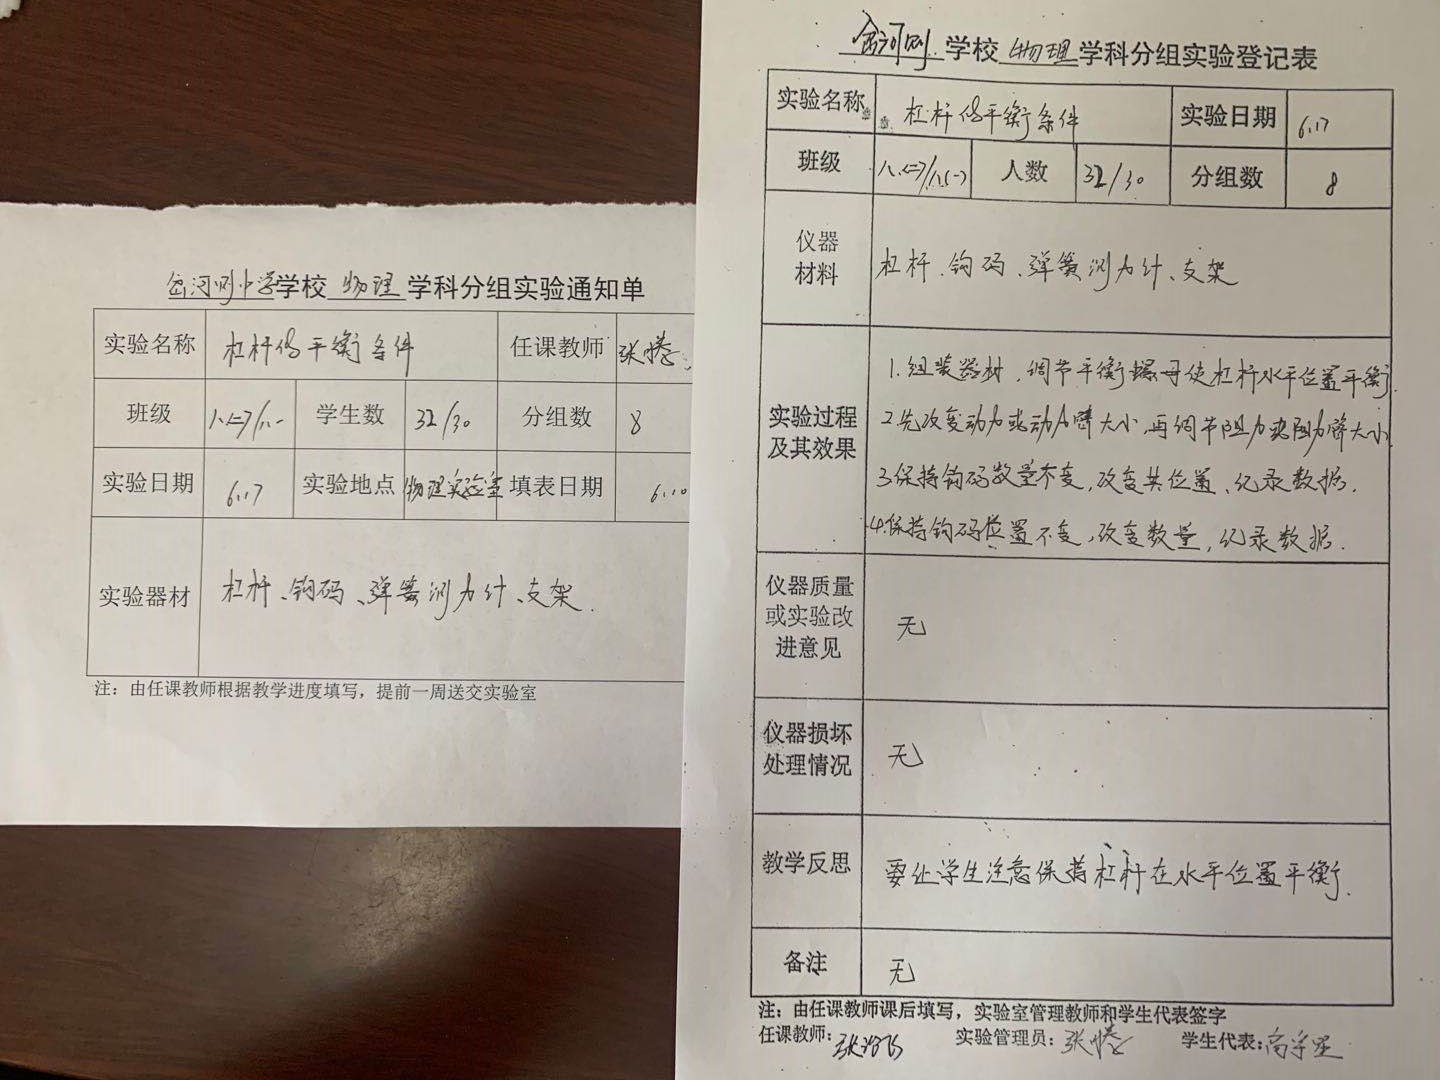 岔河则中学学校 物理 学科分组实验通知单
实验名称 杠杆的平衡条件 任课教师
班级 八.(二)/八.(一) 学生数 32/30 分组数 8
实验日期 6.17 实验地点 物理实验室 填表日期 6.10
实验器材 杠杆、钩码、弹簧测力计、支架.
注：由任课教师根据教学进度填写，提前一周送交实验室
岔河则 学校 物理 学科分组实验登记表
实验名称 杠杆的平衡条件 实验日期 6.17
班级 八.(二)/八.(一) 人数 32/30 分组数 8
仪器
材料
杠杆、钩码、弹簧测力计、支架
实验过程
及其效果
1.组装器材，调节平衡螺母使杠杆水平位置平衡.
2.先改变动力或动力臂大小，再调节阻力或阻力臂大小
3.保持钩码数量不变，改变其位置、记录数据.
4.保持钩码位置不变，改变数量，记录数据.
仪器质量
或实验改
进意见
无
仪器损坏
处理情况
无
教学反思 要让学生注意保持杠杆在水平位置平衡.
备注 无
注：由任课教师课后填写，实验室管理教师和学生代表签字
任课教师： 实验管理员： 学生代表：